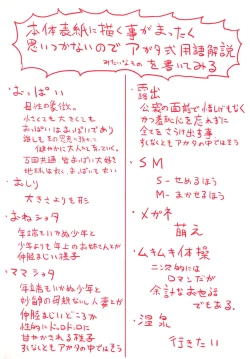 本体表紙に描く事がまったく
思いつかないのでアガタ式用語解説
みたいなものを書いてみる
・おっぱい
母性の象徴。
小さくても大きくても
おっぱいはおっぱいであり
健やかに大人へと育っていく。
万国共通 皆おっぱい大好き
地球は丸く、おっぱいも丸い
・おしり
大きさよりも形
・おねショタ
年端もいかぬ少年と
少年よりも年上のお姉さんとが
仲睦まじい様子
・ママショタ
年端もいかぬ少年と
妙齢の母親ないし人妻とが
仲睦まじいどころか
性的にドロドロに
甘やかされる様子
すくなくともアガタの中ではそう
・露出
公衆の面前で恥じげもなく
かつ羞恥心を忘れずに
全てをさらけ出す事
すくなくともアガタの中では
・SM
S-せめるほう
M-まかせるほう
・メガネ
萌え
・ムキムキ体操
二次元的には
ロマンだが
余計なお世話
でもある。
・温泉
行きたい